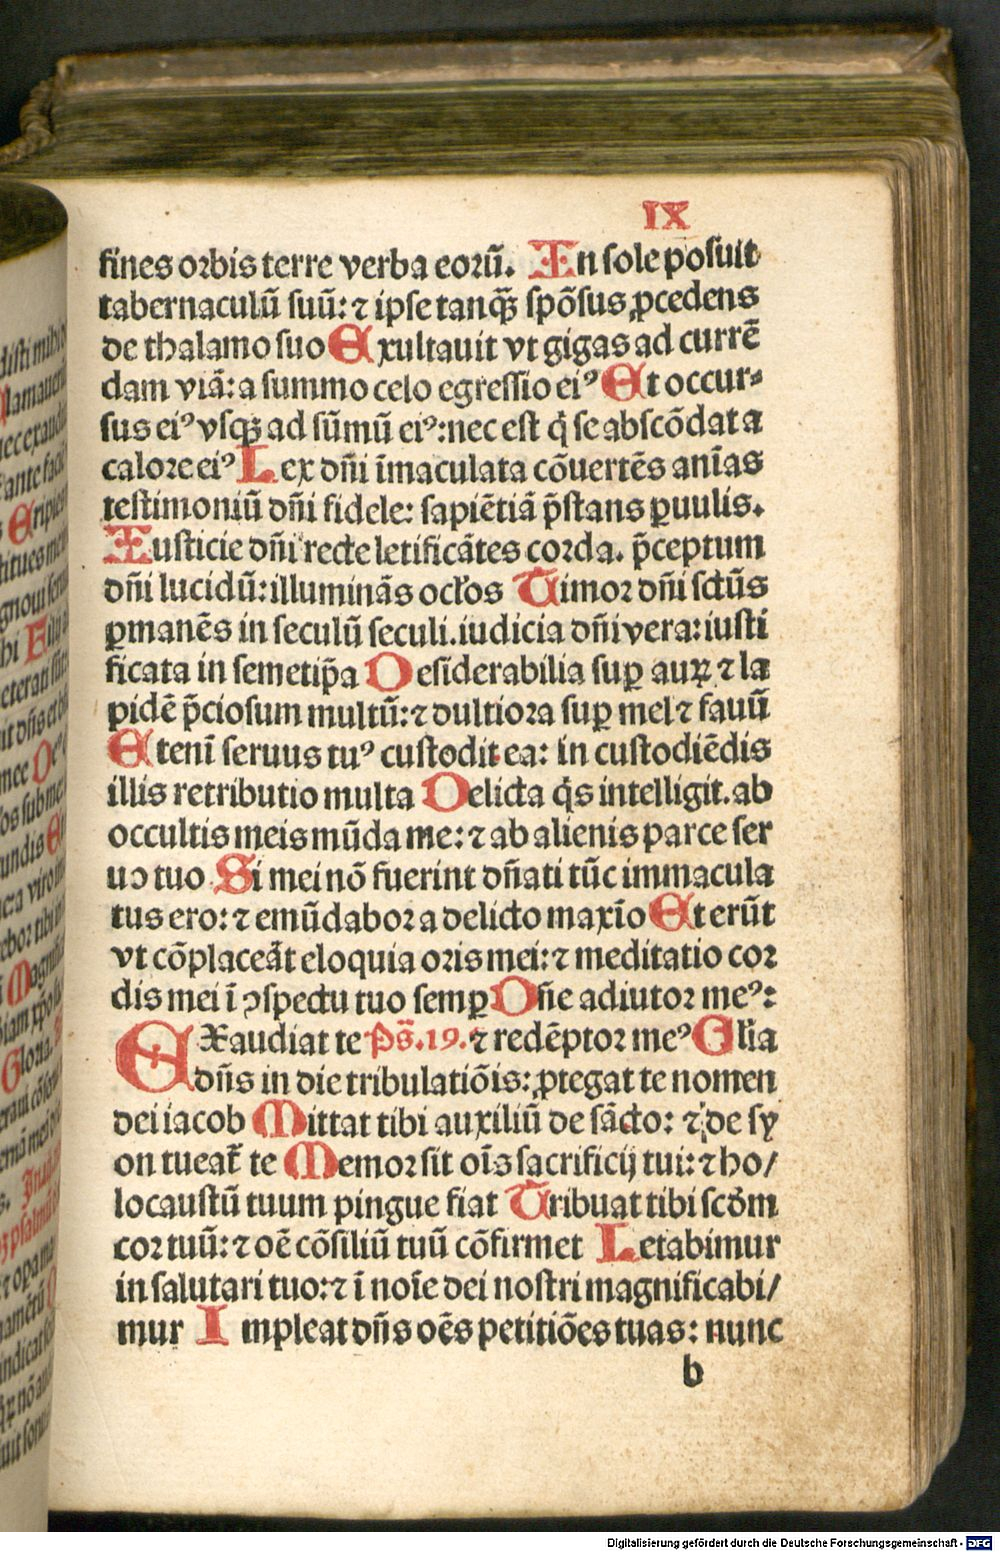 IX
fines orbis terre verba eorū. In sole posuit
tabernaculū suū: ⁊ ipse tanqꝫ̄ spōsus ꝓcedens
de thalamo suo Exultauit vt gigas ad currē
dam viā: a summo celo egressio eiꝰ Et occur⸗
sus eiꝰ vsqꝫ ad sūmū eiꝰ: nec est q̇ se abscōdat a
calore eiꝰ Lex dn̄i īmaculata cōuertēs anīas
testimoniū dn̄i fidele: sapiētiā p̄stans ꝑuulis.
Iusticie dn̄i recte letificātes corda. p̄ceptum
dn̄i lucidū: illuminās ocłos Timor dn̄i sctūs
ꝑmanēs in seculū seculi. iudicia dn̄i vera: iusti
ficata in semetip̄a Desiderabilia suꝑ auꝝ ⁊ la
pidē p̄ciosum multū: ⁊ dultiora suꝑ mel ⁊ fauū
Etenī seruus tuꝰ custodit ea: in custodiēdis
illis retributio multa Delicta q̇s intelligit. ab
occultis meis mūda me: ⁊ ab alienis parce ser
uo tuo Si mei nō fuerint dn̄ati tūc immacula
tus ero: ⁊ emūdabor a delicto maxīo Et erūt
vt cōplaceāt eloquia oris mei: ⁊ meditatio cor
dis mei ī ↄspectu tuo semꝑ Dn̄e adiutor meꝰ:
EXaudiat te Ps̄. 19. ⁊ redēptor meꝰ Gl̄ia
dn̄s in die tribulatiōis: ꝓtegat te nomen
dei iacob Mittat tibi auxiliū de sācto: ⁊ de sy
on tueat᷑ te Memor sit oīs sacrificij tui: ⁊ ho/
locaustū tuum pingue fiat Tribuat tibi scd̄m
cor tuū: ⁊ oē cōsiliū tuū cōfirmet Letabimur
in salutari tuo: ⁊ ī noīe dei nostri magnificabi/
mur Impleat dn̄s oēs petitiōes tuas: nunc
b
Digitalisierung gefördert durch die Deutsche Forschungsgemeinschaft - DFG